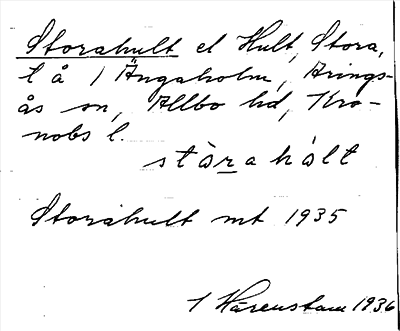 Storahult el Hult, Stora,
l å / Ängaholm, Arings-
ås sn, Allbo hd, Kro-
nobs l.
stàra hált
Storahult mt 1935
1 Hårenstam 1936